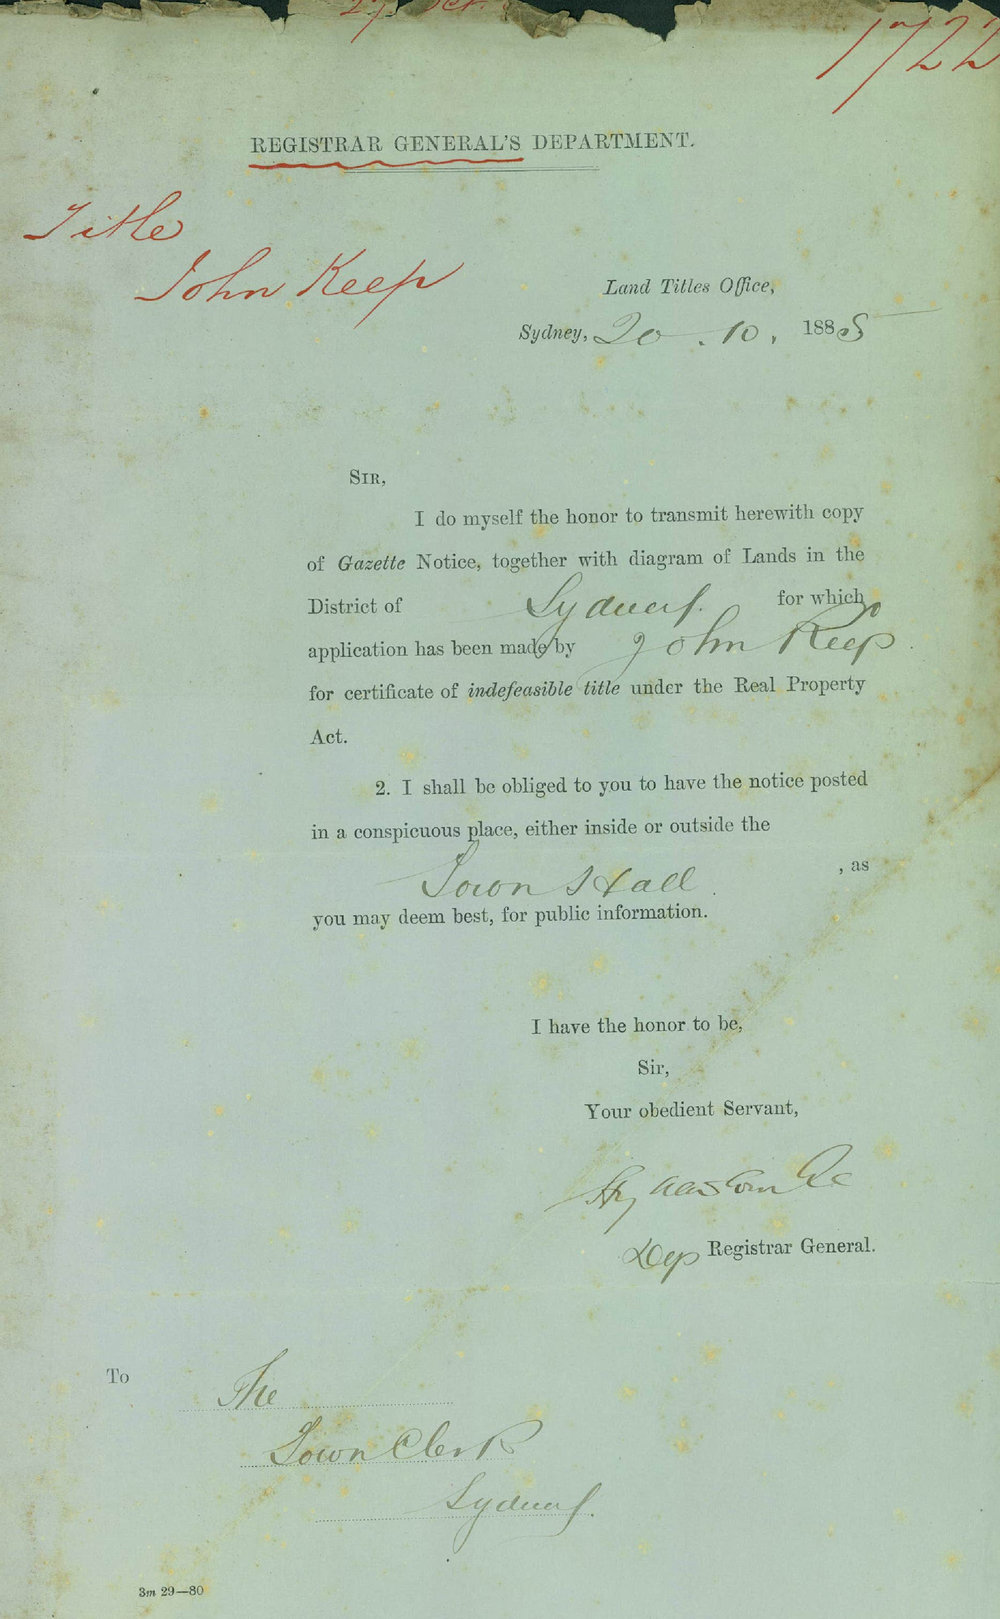 27 Oct.
1722
REGISTRAR GENERAL'S DEPARTMENT.
Title
John Keep
Land Titles Office,
Sydney, 20 . 10 . 1885
SIR,
I do myself the honor to transmit herewith copy
of Gazette Notice, together with diagram of Lands in the
District of Sydney. for which
application has been made by John Keep.
for certificate of indefeasible title under the Real Property
Act.
2. I shall be obliged to you to have the notice posted
in a conspicuous place, either inside or outside the
Town Hall . , as
you may deem best, for public information.
I have the honor to be,
Sir,
Your obedient Servant,
Dep Registrar General.
To The
Town Clerk
Sydney.
3m 29—80